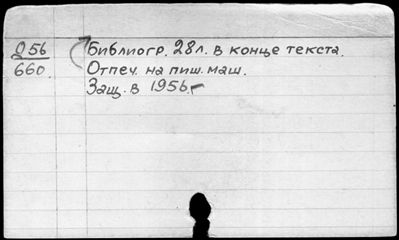 Д 56
660.
Библиогр. 28 л. в конце текста.
Отпеч. на пиш. маш.
Защ. в 1956 г